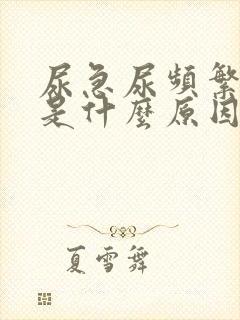 尿急尿頻繁
是什麼原因
夏雪舞